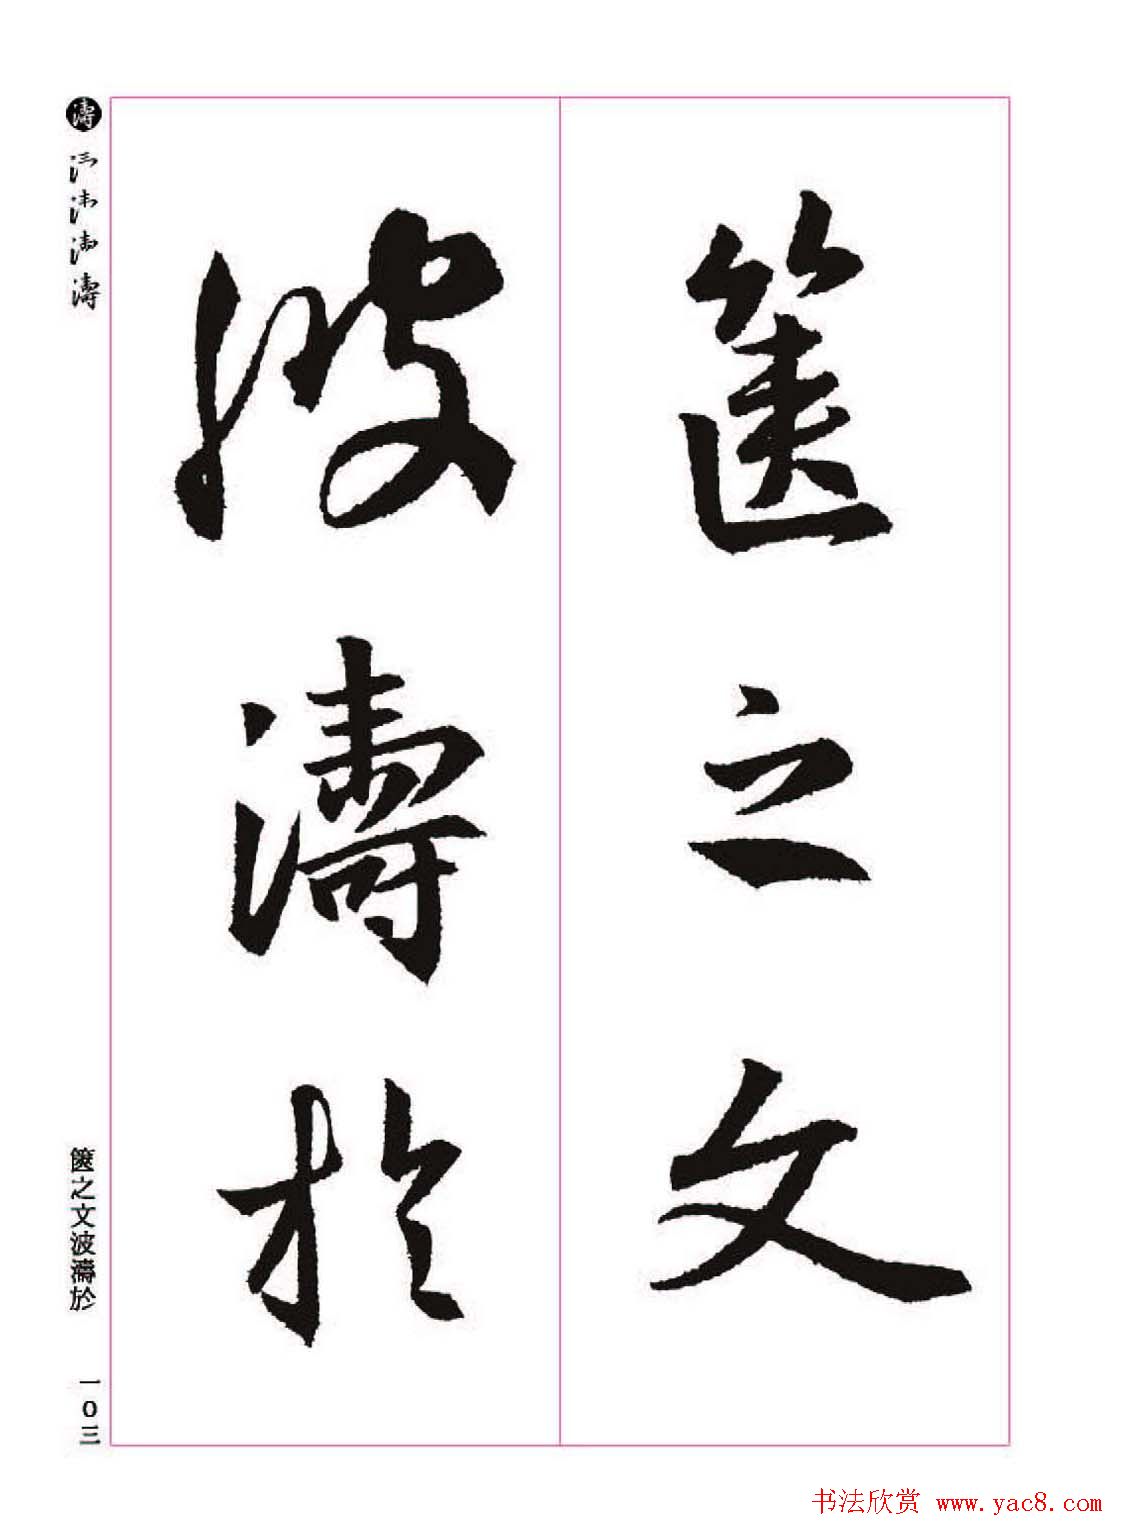 篋之文
波濤於
濤
濤
篋之文波濤於
一〇三
书法欣赏 www.yac8.com